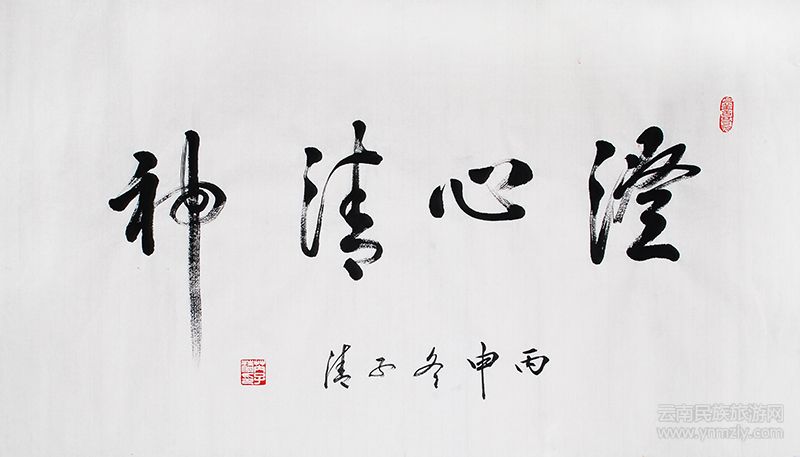 澄心清神
丙申冬子清
云南民族旅游网
www.ynmzly.com